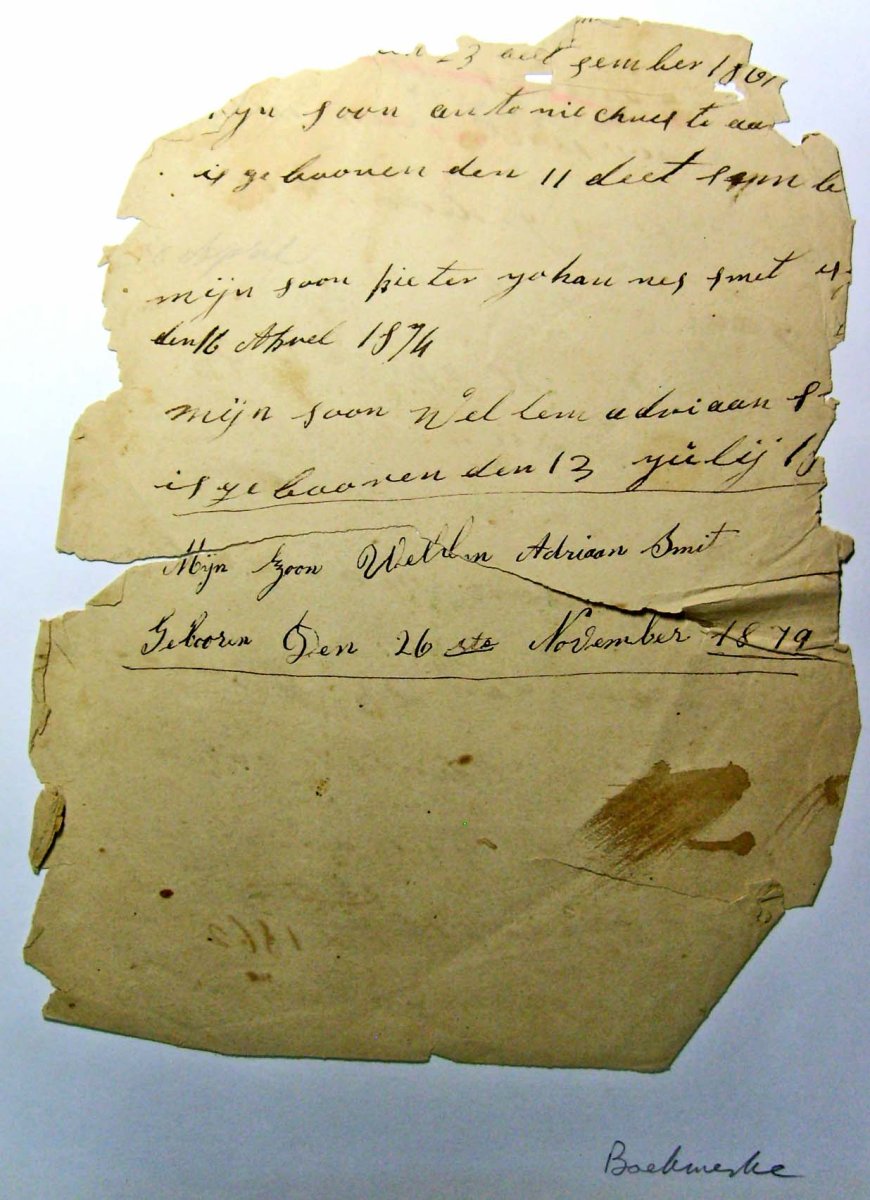 23 deet sember 1861
mijn soon antonie
is gebooren den 11 deet
mijn soon pieter yohan nes smet
den 16 Apvel 1874
mijn soon Wellem adriaan s
is gebooren den 13 yulij 1
Mijn Zoon Wellem Adriaan Smit
Gebooren Den 26 ste November 1879
1862
Boekmerke